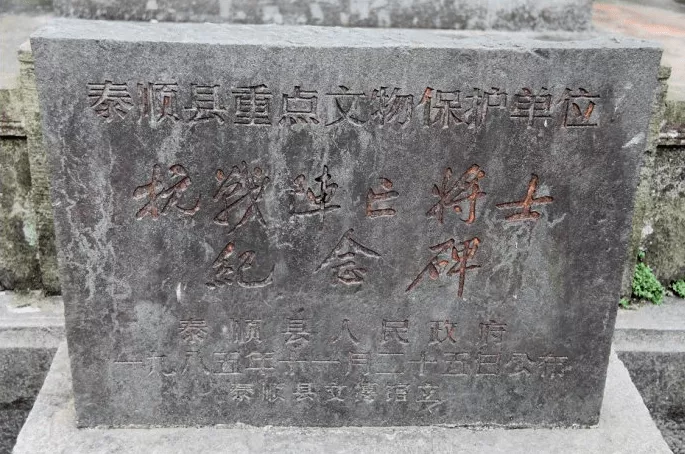 泰顺县重点文物保护单位
抗战阵亡将士
紀念碑
泰顺县人民政府
一九八五年十一月二十五日公布
泰顺县文博馆立